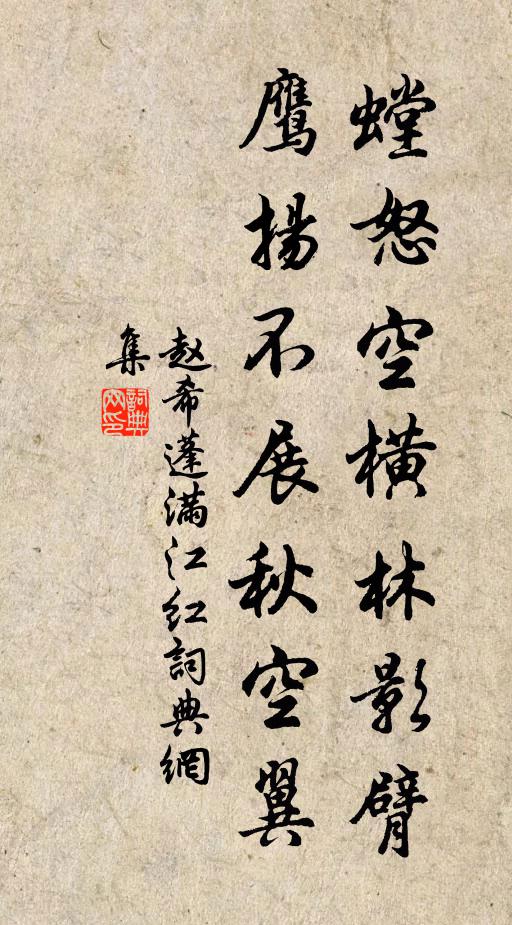 螳怒空横林影臂
鹰扬不展秋空翼
赵希蓬满江红詞典網
集
詞典
网印